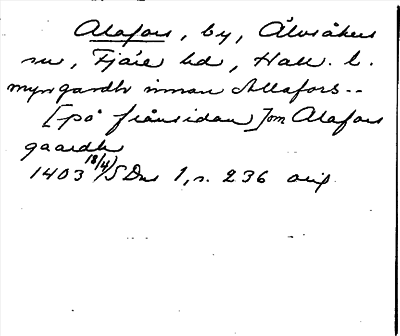 Alafors, by, Älvsåkers
sn, Fjäre hd, Hall. l.
myn gardh innan Allafors--
[på frånsidan] om Alafors
gaardh
1403 18/4) SDns 1, s. 236 orig